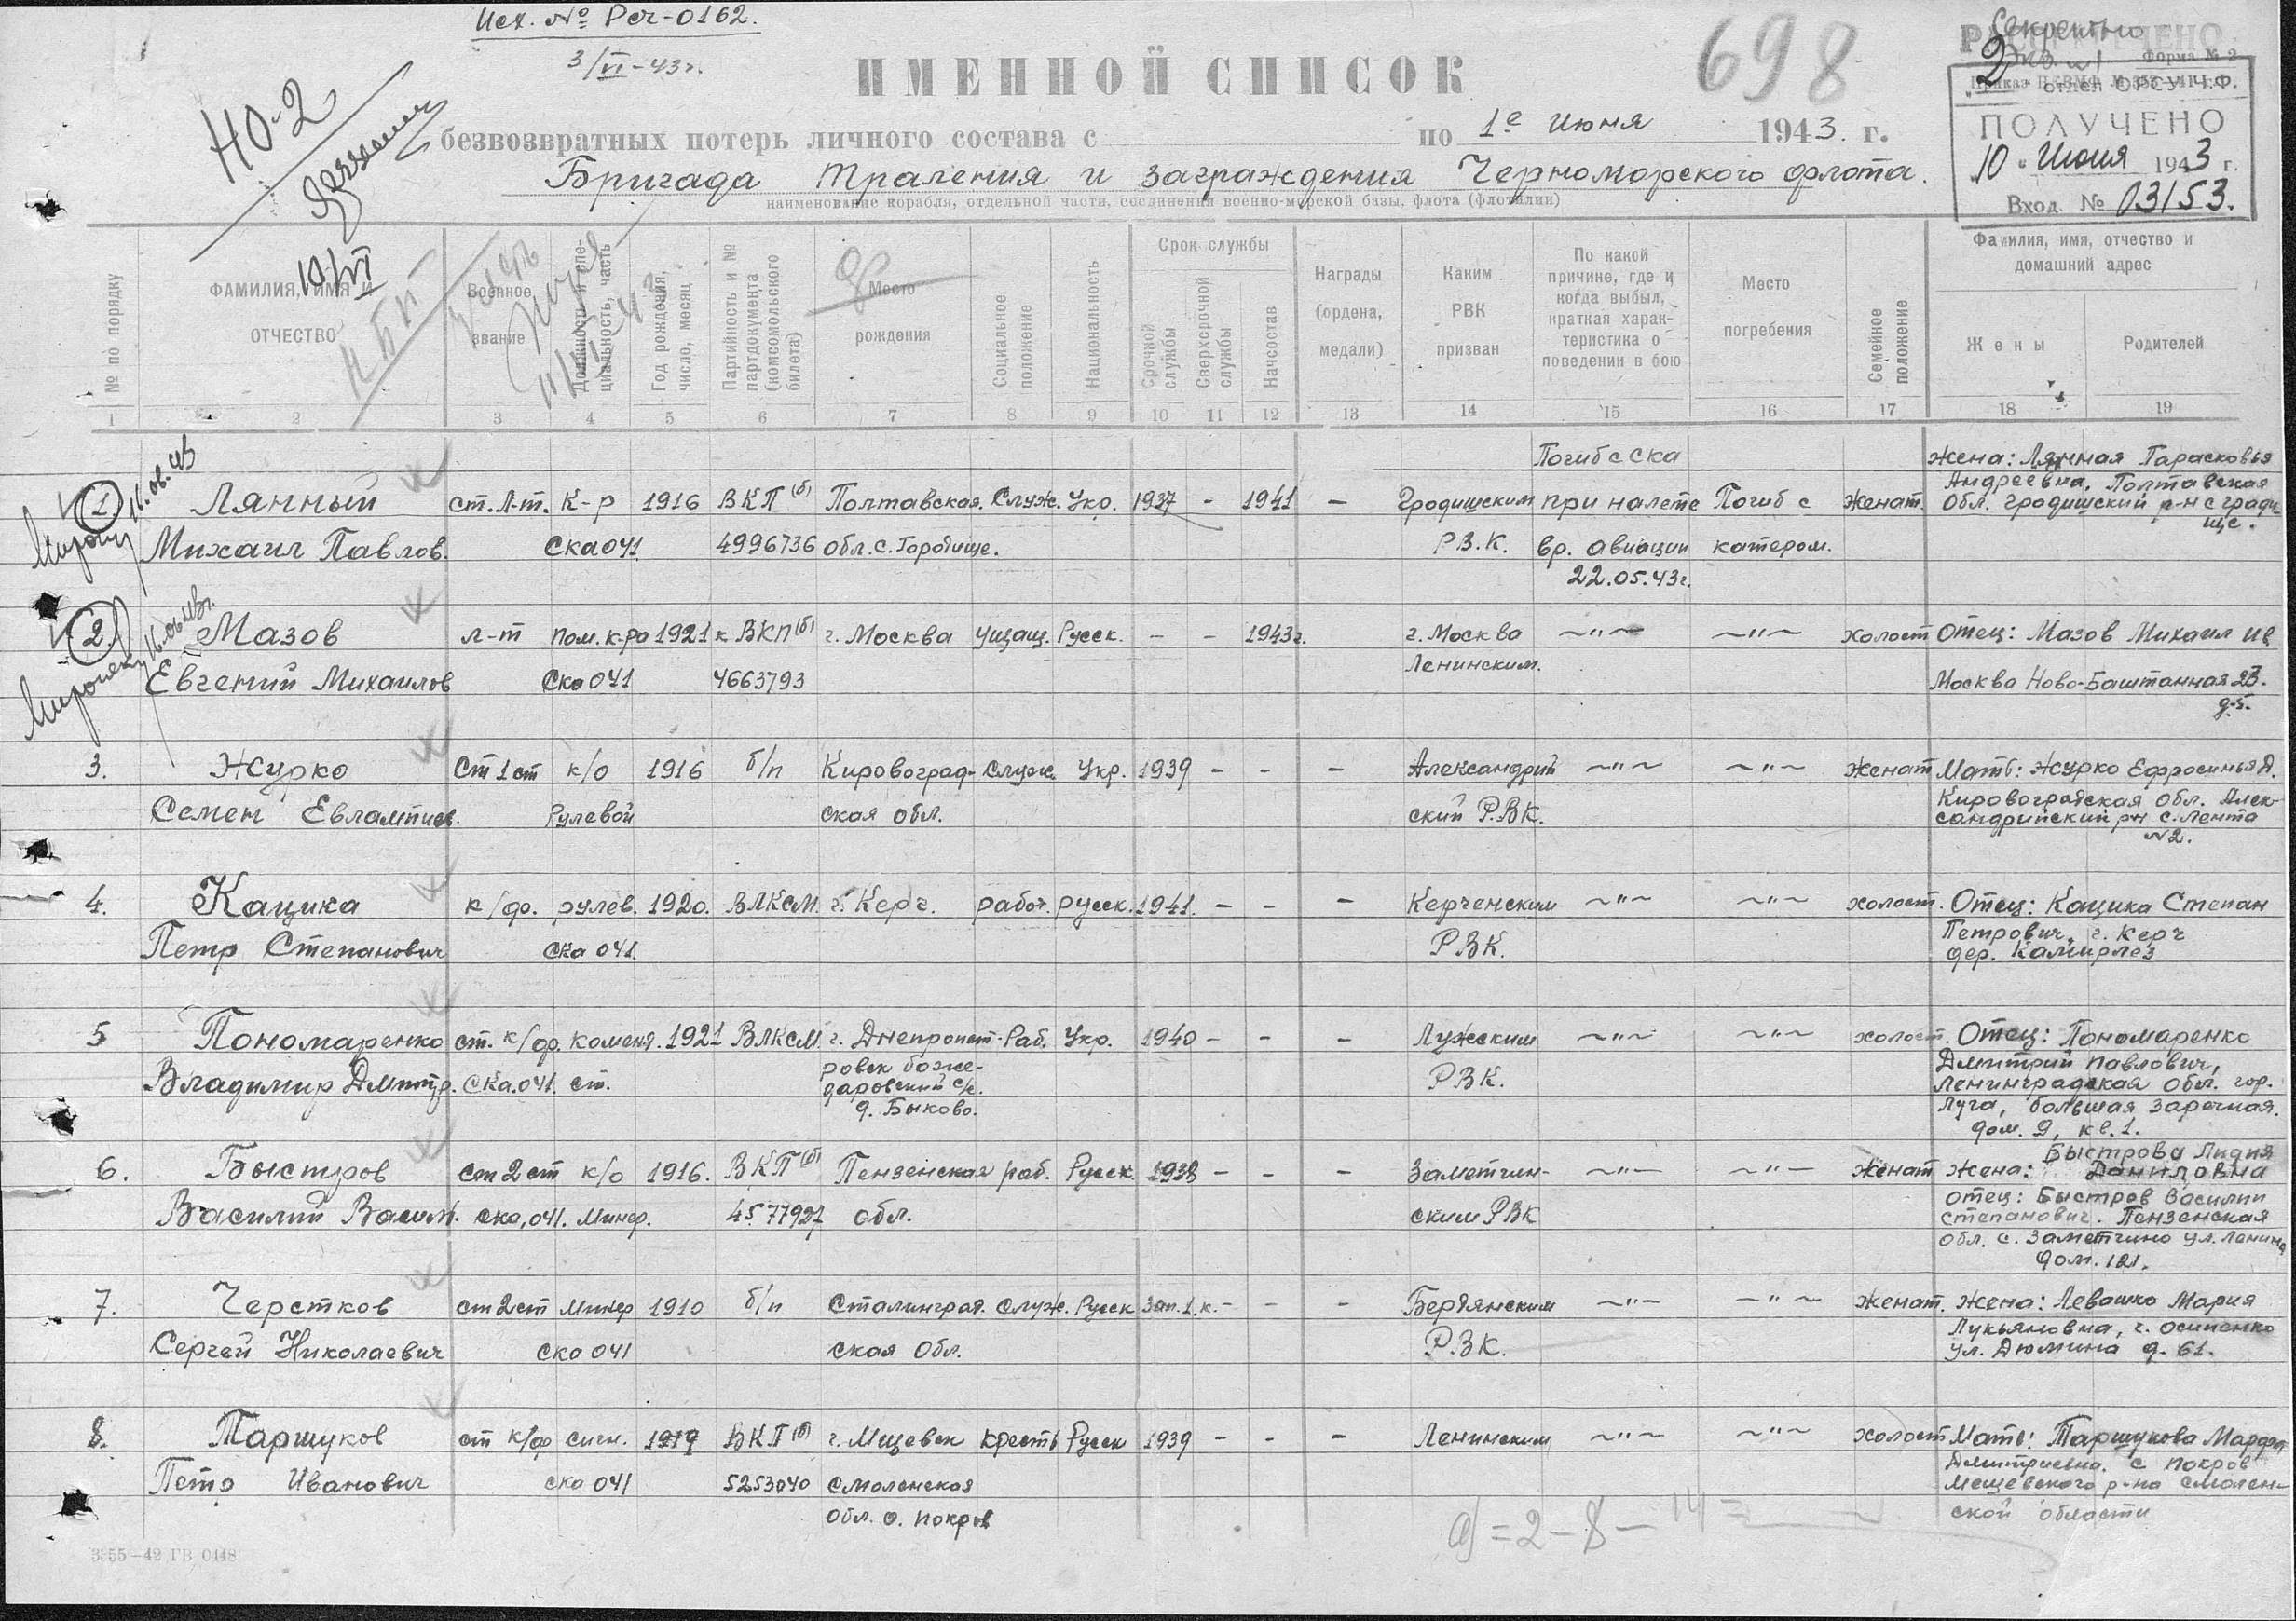 Исх. № Рсч-0162.
3/VI-43г.
698
Секретно
Экз. №1
Форма № 2
НО-2
10/VI
ИМЕННОЙ СПИСОК
безвозвратных потерь личного состава с по 1е Июня 1943. г.
Бригада Траления и заграждения Черноморского флота.
наименование корабля, отдельной части, соединения военно-морской базы, флота (флотилии)
отдел ОРСУ Ч.Ф.
ПОЛУЧЕНО
10 " Июня 1943 г.
Вход. № 03153.
№ по порядку
ФАМИЛИЯ, ИМЯ И ОТЧЕСТВО
Военное звание
Должность и специальность, часть
Год рождения, число, месяц
Партийность и № партдокумента (комсомольского билета)
Место рождения
Социальное положение
Национальность
Срок службы
Срочной службы
Сверхсрочной службы
Начсостав
Награды (ордена, медали)
Каким РВК призван
По какой причине, где и когда выбыл, краткая характеристика о поведении в бою
Место погребения
Семейное положение
Фамилия, имя, отчество и домашний адрес
Жены
Родителей
1 2 3 4 5 6 7 8 9 10 11 12 13 14 15 16 17 18 19
Погиб с Ска Жена: Лянная Парасковья
Андреевна, Полтавская
1. Лянный ст. Л-т. К-р 1916 ВКП(б) Полтавская. Служ. Укр. 1937 - 1941 - Гродищским при налете Погиб с Женат. Обл. Гродищский р-н с Гради-
ще.
Михаил Павлов. Ска 041 4996736 обл. с. Городище. Р.В.К. вр. авиации катером.
22.05.43г.
2. Мазов л-т пом. к-ра 1921 к ВКП(б) г. Москва учащ. Русск. - - 1943г. г. Москва ~"~ ~"~ холост Отец: Мазов Михаил Ив
Ленинским.
Евгений Михаилов Ска 041 4663793 Москва Ново-Баштанная 23.
д.5.
3. Журко Ст 1 ст к/о 1916 б/п Кировоград- служ. Укр. 1939 - - - Александрий ~"~ ~"~ Женат Мать: Журко Ефросинья Д.
Кировоградская обл. Алек-
Семен Евлампиев. Рулевой ская обл. ский Р.ВК. сандрийский р-н с. Лента
№2.
4. Кацика к/фл. рулев. 1920. ВЛКСМ. г. Керч. работ. русск. 1941. - - - Керченским ~"~ ~"~ холост. Отец: Кацика Степан
Петрович, г. Керч
Петр Степанович Ска 041. РВК. дер. Камирлез
5 Пономаренко ст. к/фл. коменд. 1921 ВЛКСМ. г. Днепропет- Раб. Укр. 1940 - - - Лужским ~"~ ~"~ холост. Отец: Пономаренко
ровск боже- Дмитрий Павлович,
Владимир Дмитр. СКа.041. ст. даровский с/с. РВК. Ленинградская обл. гор.
д. Быково. Луга, большая заречная.
дом. 9, кв. 1.
Быстрова Лидия
6. Быстров ст 2 ст к/о 1916. ВКП(б) Пензенская раб. Русск. 1938 - - - Заметчин- ~"~ ~"~ женат Жена: Даниловна
отец: Быстров Василий
Василий Васил. ска, 041. Минер. 4577927 обл. ским РВК Степанович. Пензенская
обл. с. Заметчино ул. Ленина
дом. 121.
7. Черстков ст 2 ст минер 1910 б/п Сталинград. служ. Русск Зап. 1. к. - - - Бердянским ~"~ ~"~ Женат. Жена: Левашко Мария
Лукьяновна, г. Осипенко
Сергей Николаевич ска 041 ская обл. Р.ВК. ул. Дюмина д. 61.
8. Таршуков ст к/фл сигн. 1919 ВКП(б) г. Мщевск крестья Русск 1939 - - - Ленинским ~"~ ~"~ холост Мать: Таршукова Марфа
Дмитриевна, с Покров
Петр Иванович ска 041 5253040 Смоленская Мещевского р-на Смолен-
обл. с. Покров ской области
= 2 - 8 - 14 =
3355-42 ГВ 0448